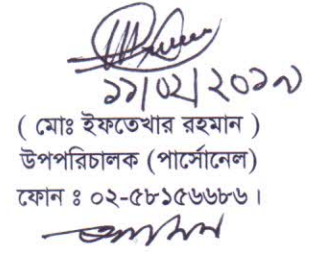 ১১/০২/২০১৯
( মোঃ ইফতেখার রহমান )
উপপরিচালক (পার্সোনেল)
ফোন ঃ ০২-৫৮১৫৬৬৮৬।